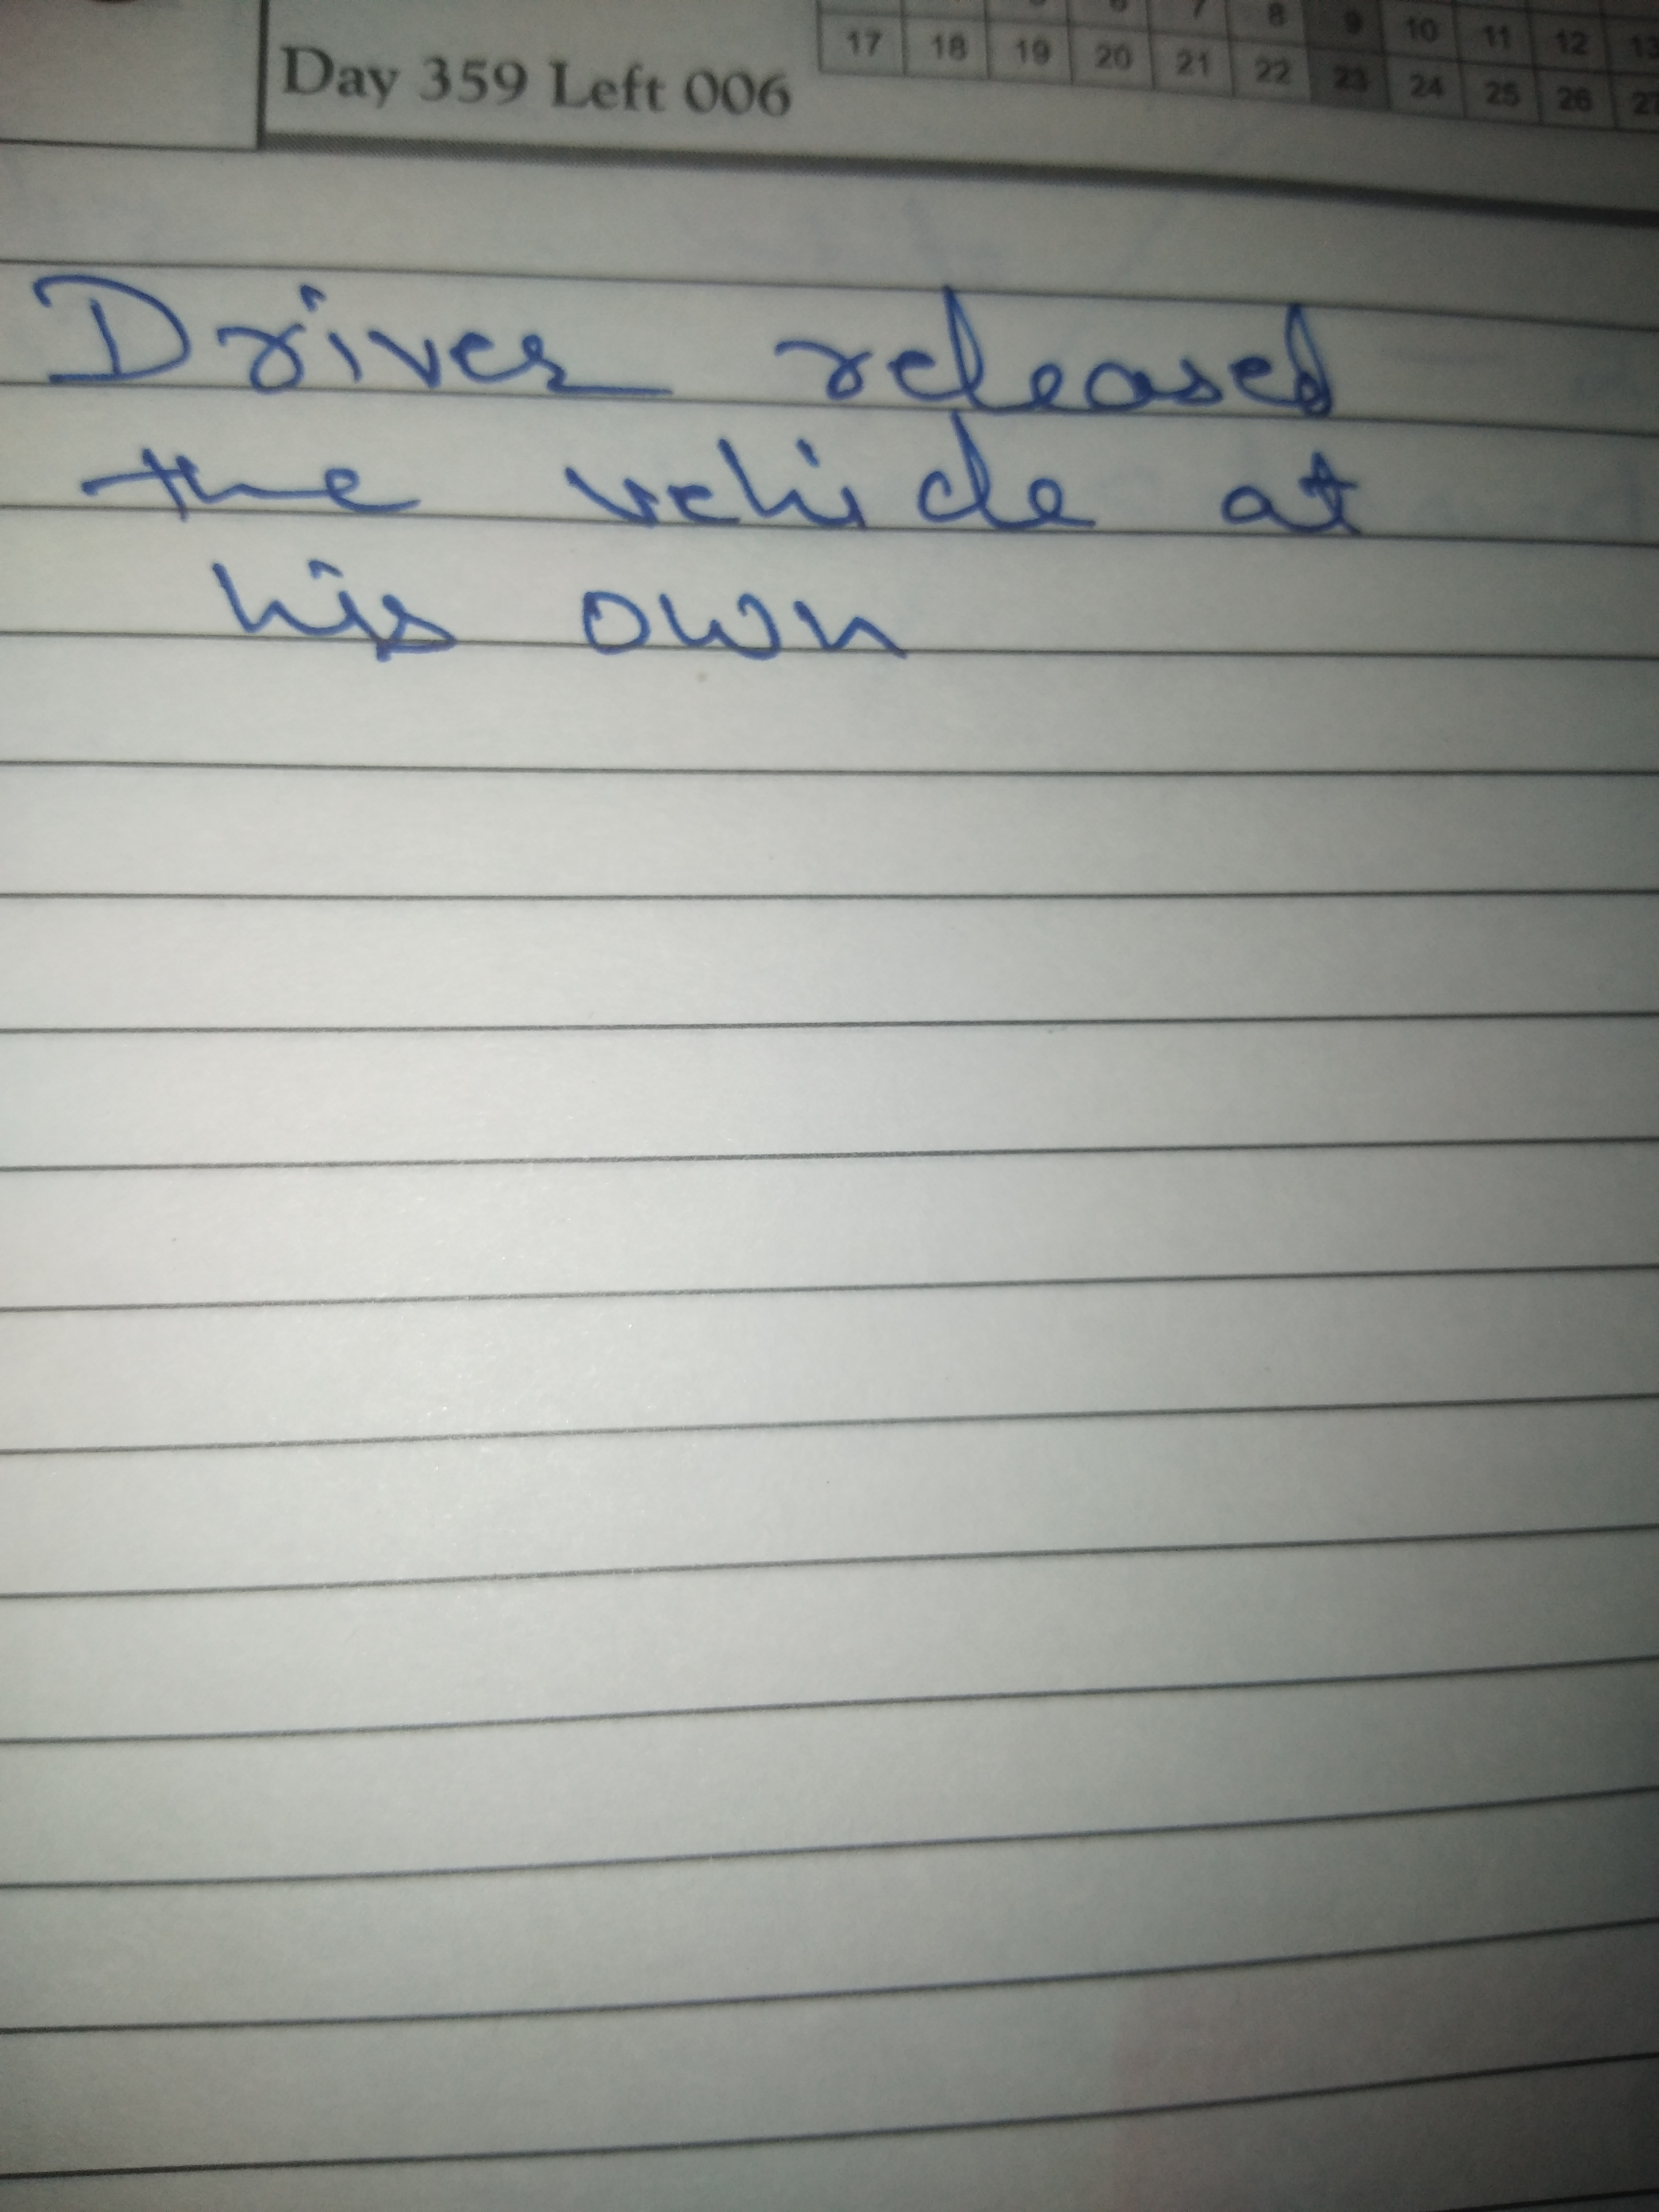 7 8 9 10 11 12 13
17 18 19 20 21 22 23 24 25 26 27
Day 359 Left 006
Driver released
the vehicle at
his own